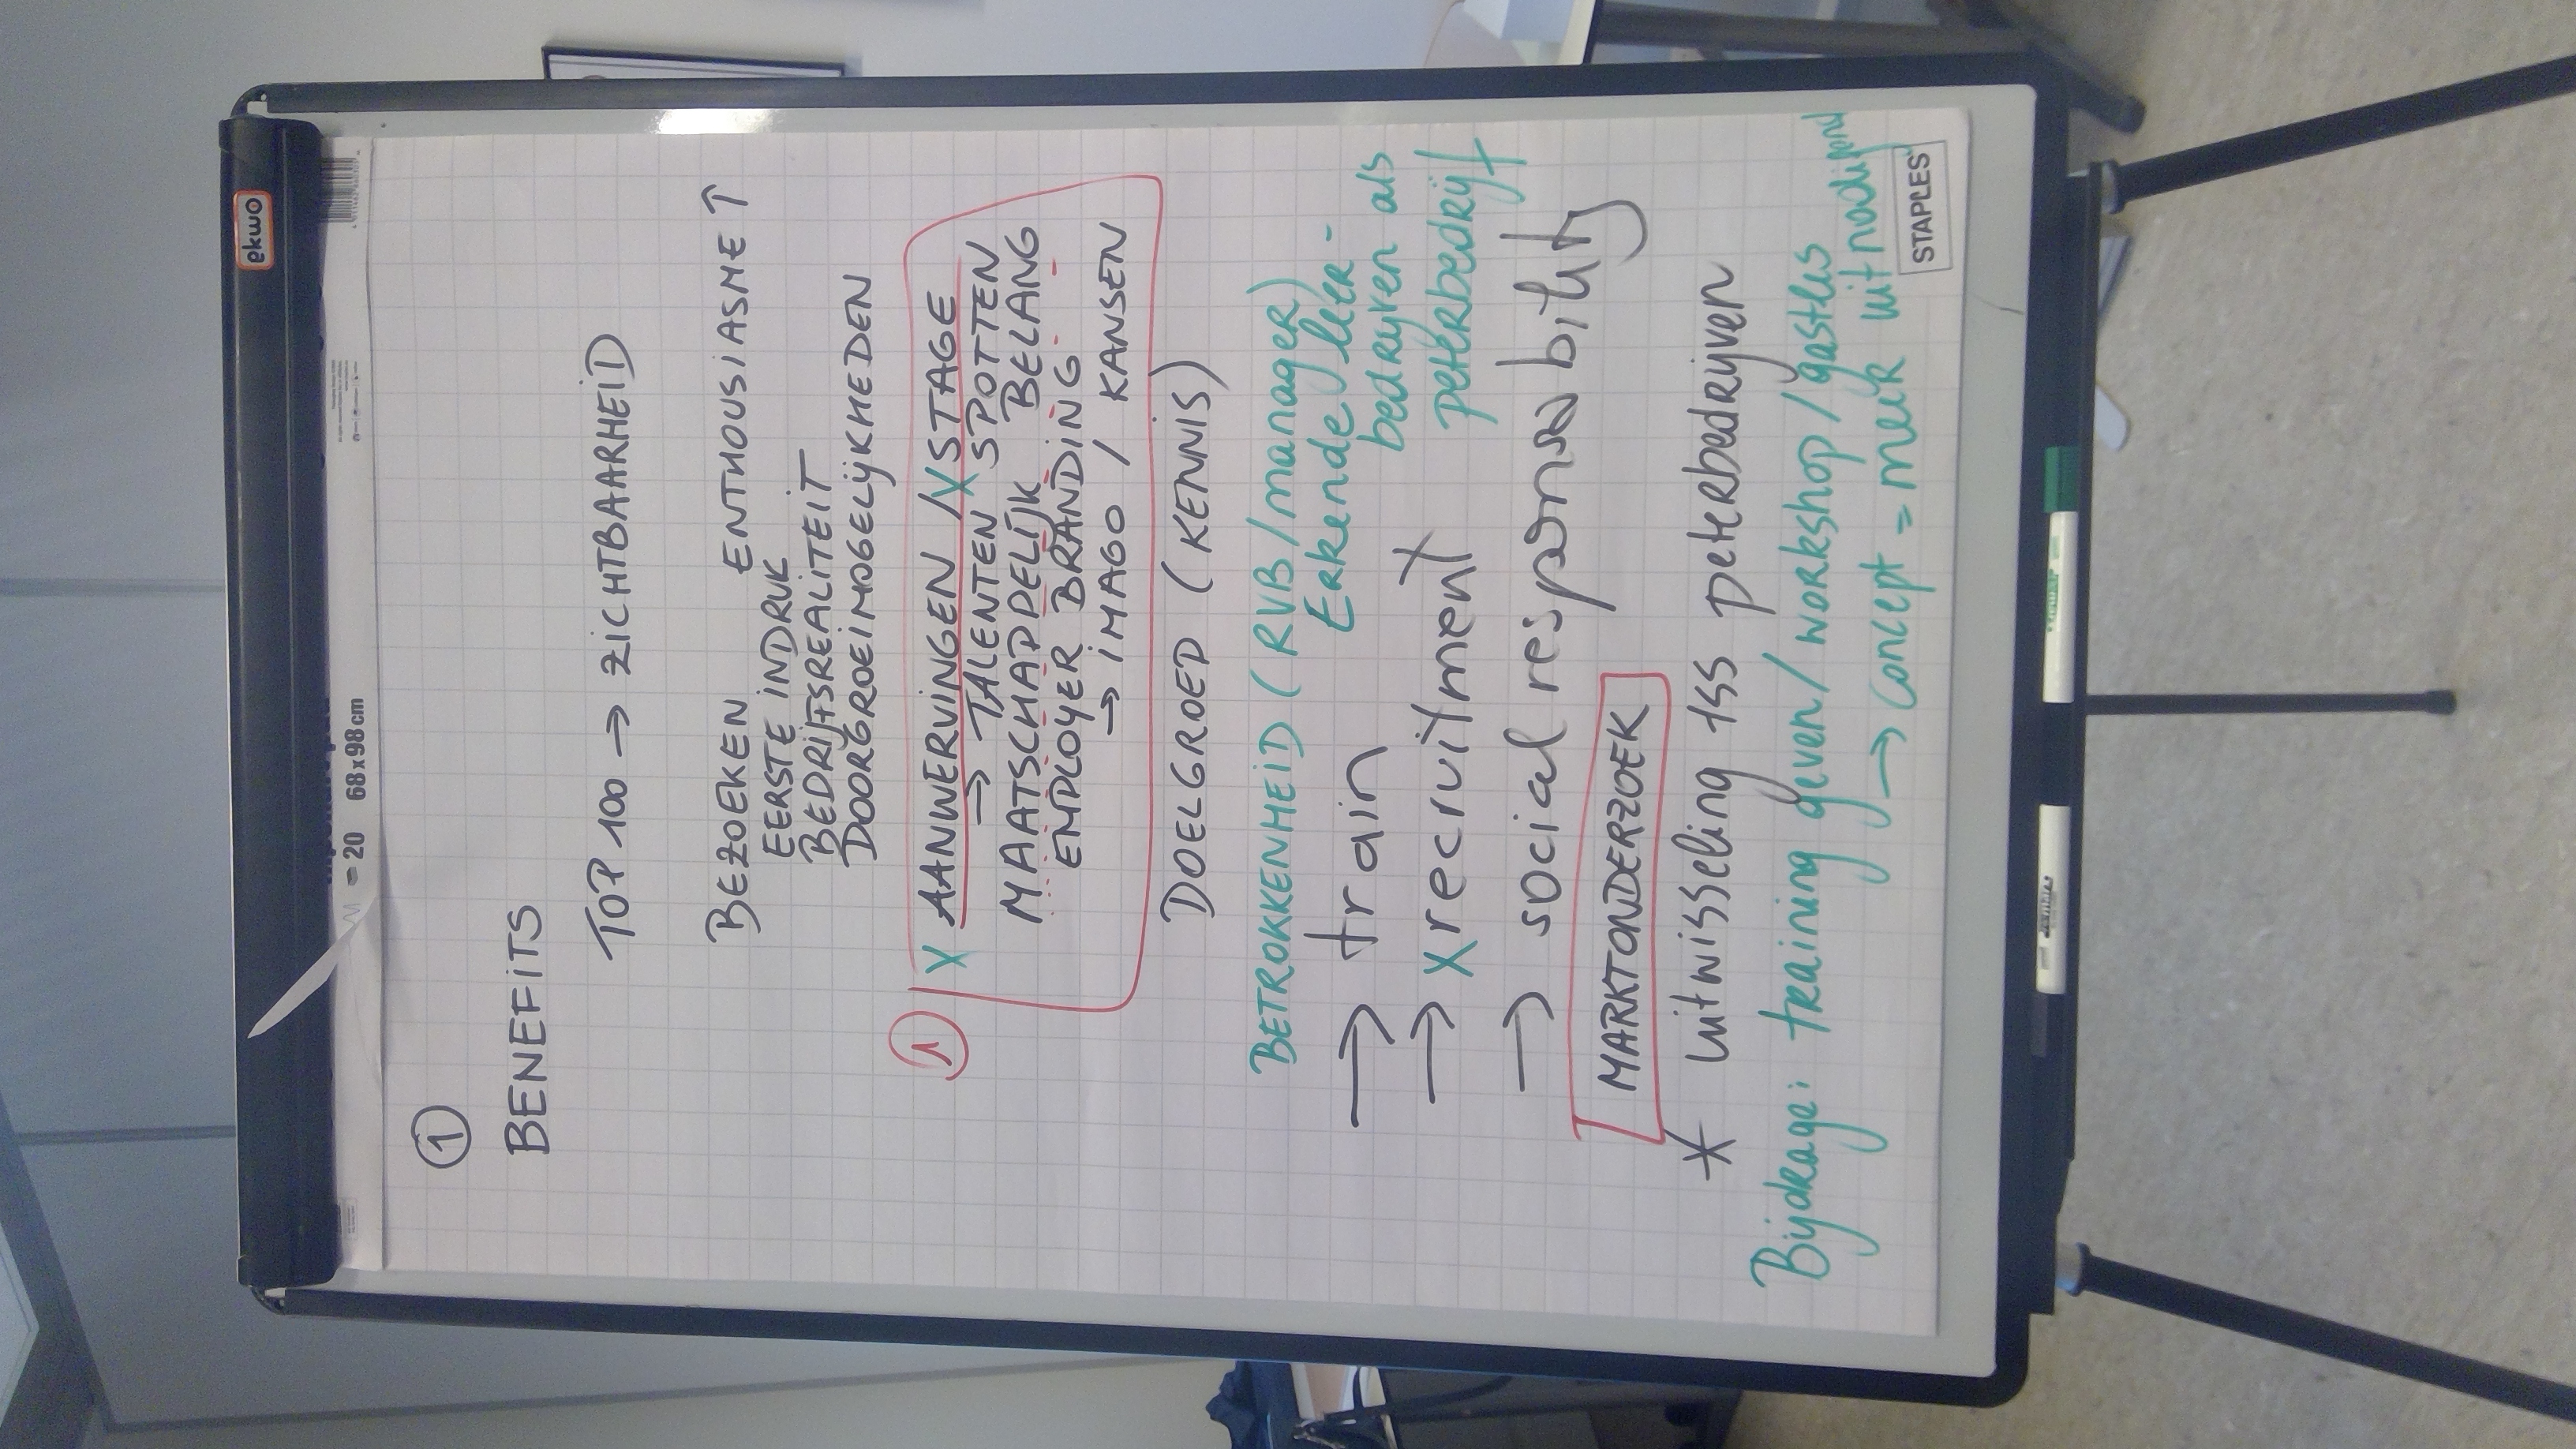 ekwo
20 68x98cm
1
BENEFITS
TOP 100 → ZICHTBAARHEID
BEZOEKEN ENTHOUSIASME ↑
EERSTE INDRUK
BEDRIJFSREALITEIT
DOORGROEIMOGELIJKHEDEN
1 X AANWERVINGEN / X STAGE
→ TALENTEN SPOTTEN
MAATSCHAPPELIJK BELANG
EMPLOYER BRANDING
→ IMAGO / KANSEN
DOELGROEP (KENNIS)
BETROKKENHEID (RVB/manager)
→ train Erkende leer-
bedrijven als
→ X recruitment X peterbedrijf
→ social responsability
MARKTONDERZOEK
* uitwisseling tss peterbedrijven
Bijdrage: training geven / workshop / gastles
→ concept = meer uitnodigend
STAPLES